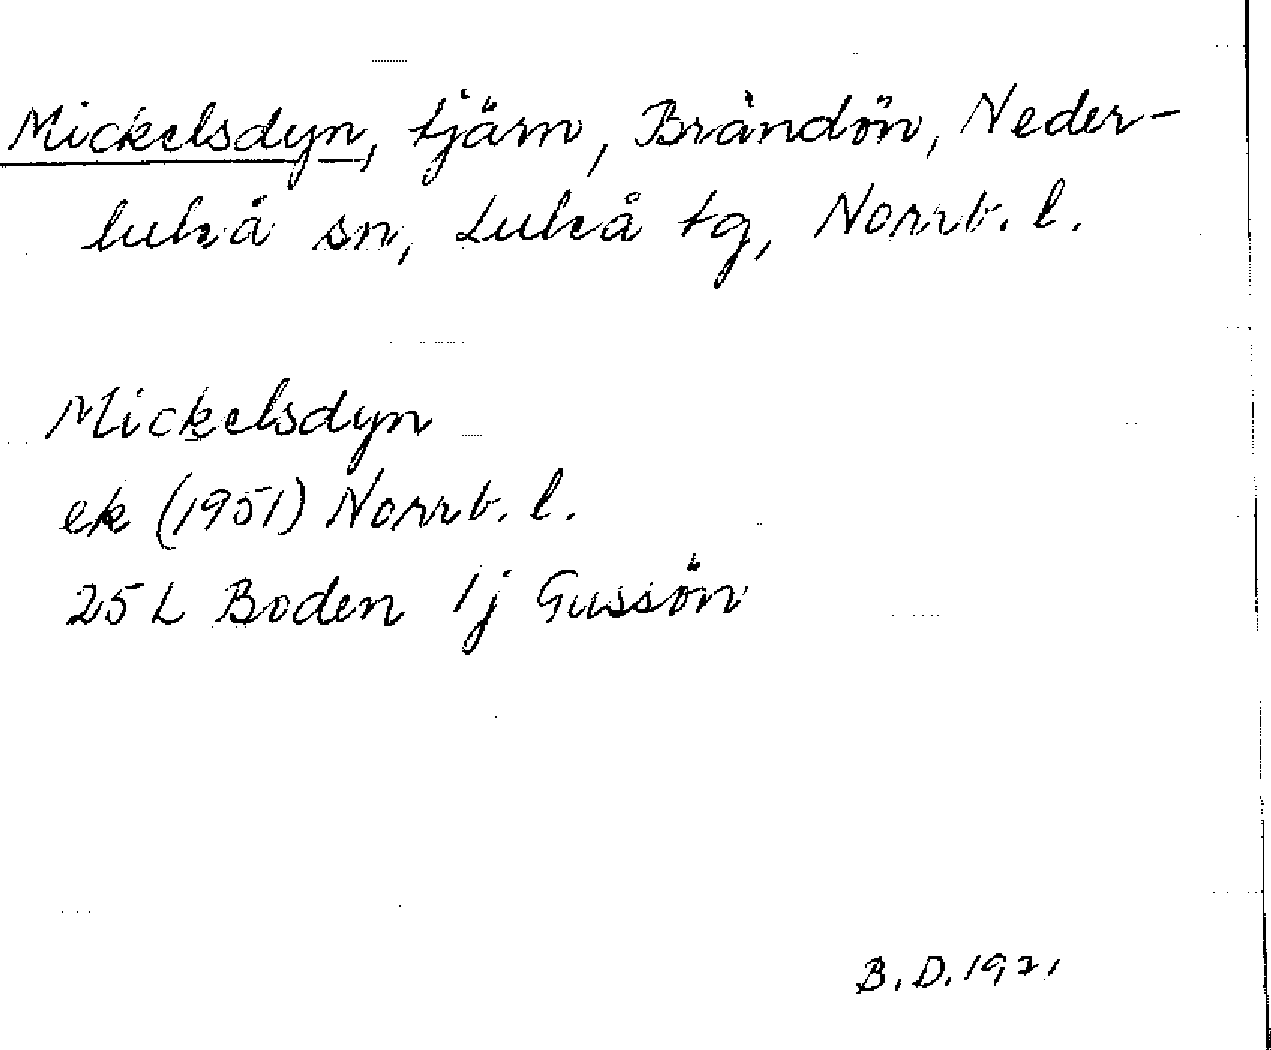 Mickelsdyn, tjärn, Brändön, Neder-
luleå sn, Luleå tg, Norrb. l.
Mickelsdyn
ek (1951) Norrb. l.
25 L Boden 1j Gussön
B. D. 1921